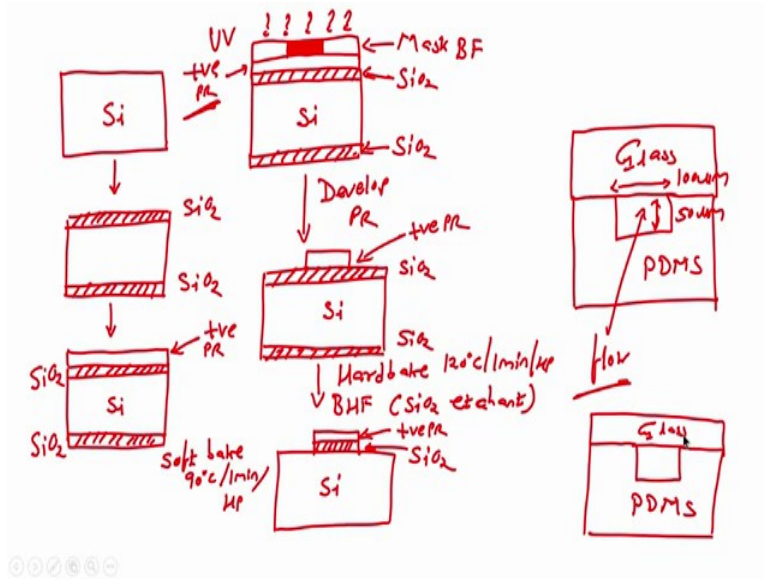 Si
SiO2
SiO2
+ve
PR
SiO2
Si
SiO2
Soft bake
90°C/1min/
HP
UV
Mask BF
+ve
PR
SiO2
Si
SiO2
Develop
PR
+ve PR
SiO2
Si
SiO2
Hardbake 120°C/1min/HP
BHF (SiO2 etchant)
+ve PR
SiO2
Si
Glass
100um
50um
PDMS
flow
Glass
PDMS